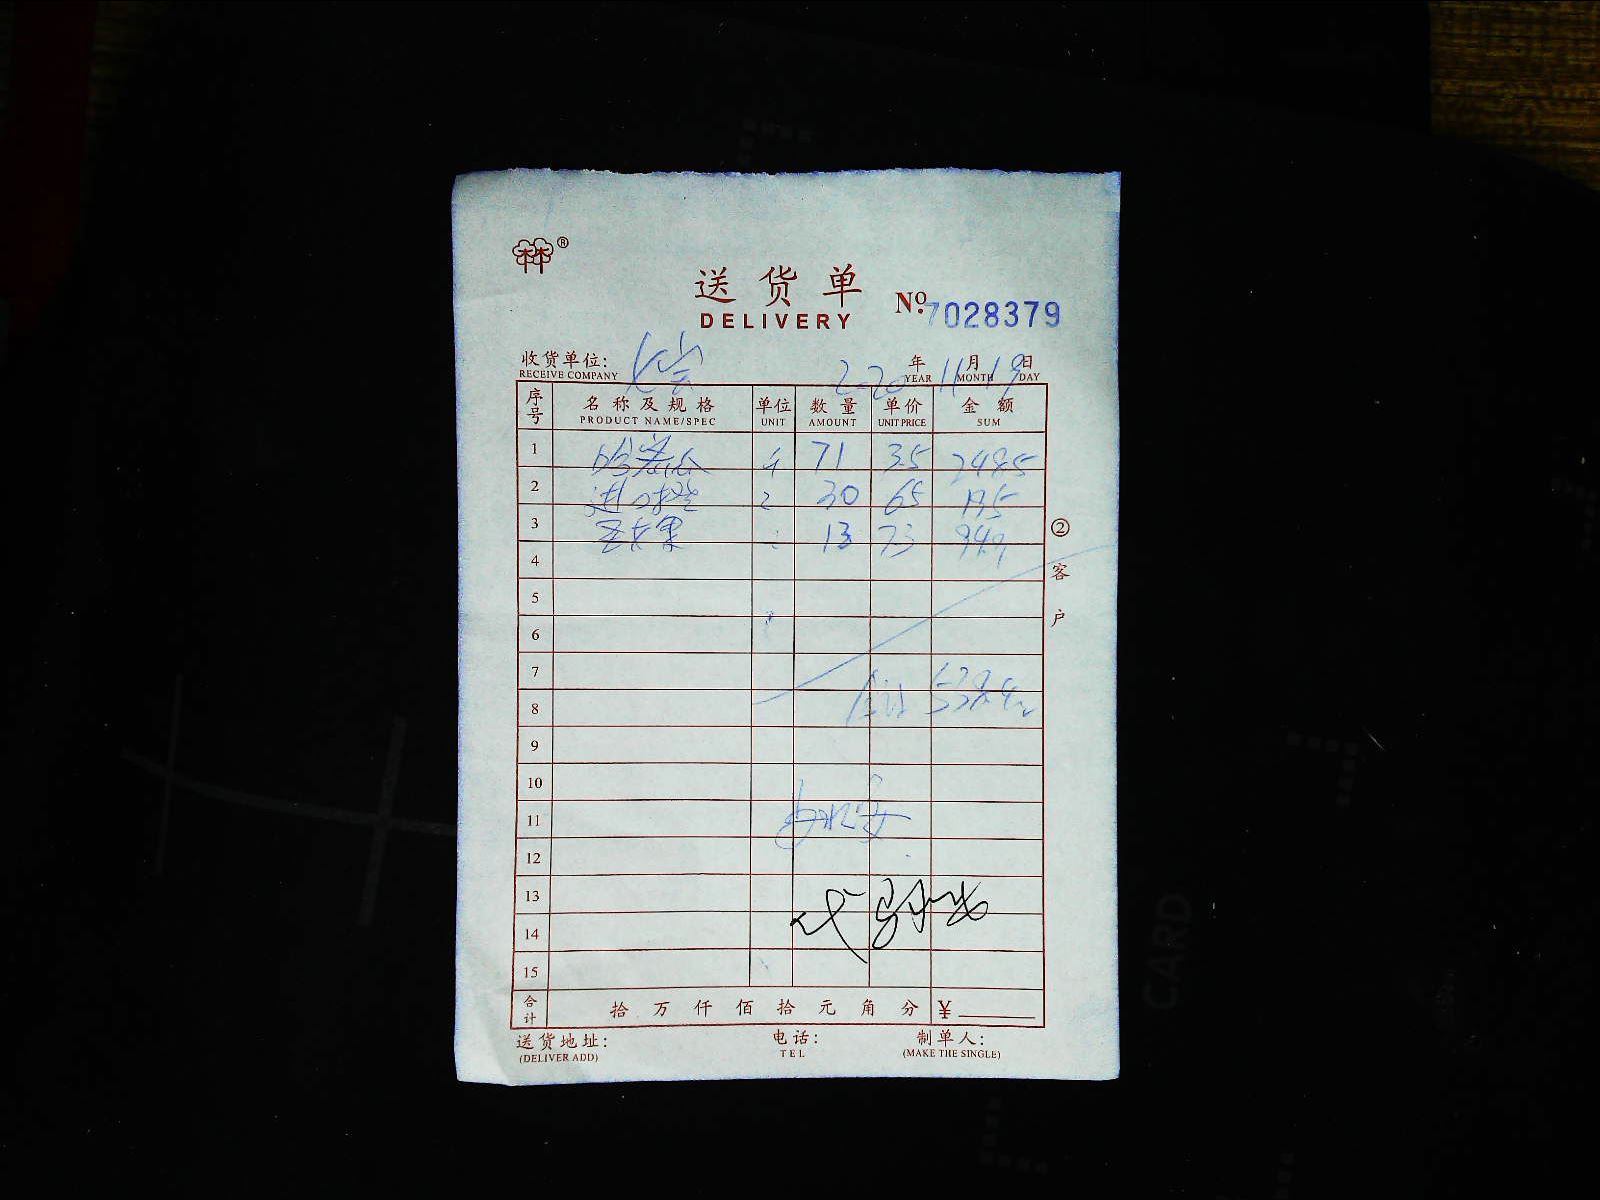 林林®
送货单
DELIVERY
No. 7028379
收货单位:
RECEIVE COMPANY
2020 年 11 月 19 日
YEAR MONTH DAY
序号 名称及规格 单位 数量 单价 金额
PRODUCT NAME/SPEC UNIT AMOUNT UNIT PRICE SUM
1 哈密瓜 斤 71 3.5 248.5
2 进口橙 30 6.5 195
3 13 7.3 94.9
4
5
6
7
8 合计 538.4元
9
10
11
12
13
14
15
合计 拾 万 仟 佰 拾 元 角 分 ¥
② 客户
送货地址: 电话: 制单人:
(DELIVER ADD) TEL (MAKE THE SINGLE)
CARD